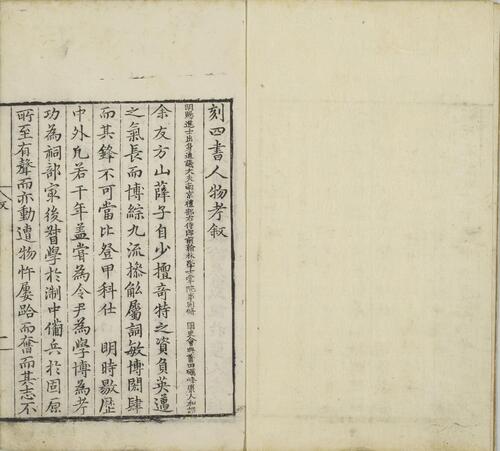 刻四書人物考叙
明賜進士出身通議大夫南京禮部右侍郎前翰林學士掌院事同修 國史會典莆田
余友方山薛子自少擅奇特之資負英邁
之氣長而博綜九流摻觚屬詞敏博閎肆
而其鋒不可當比登甲科仕 明時敭歷
中外凢若干年盖嘗為令尹為學博為考
功為祠部冣後督學於淛中俻兵於固原
所至有聲而亦動遭物忤屢跲而奮而其志不
叙
一